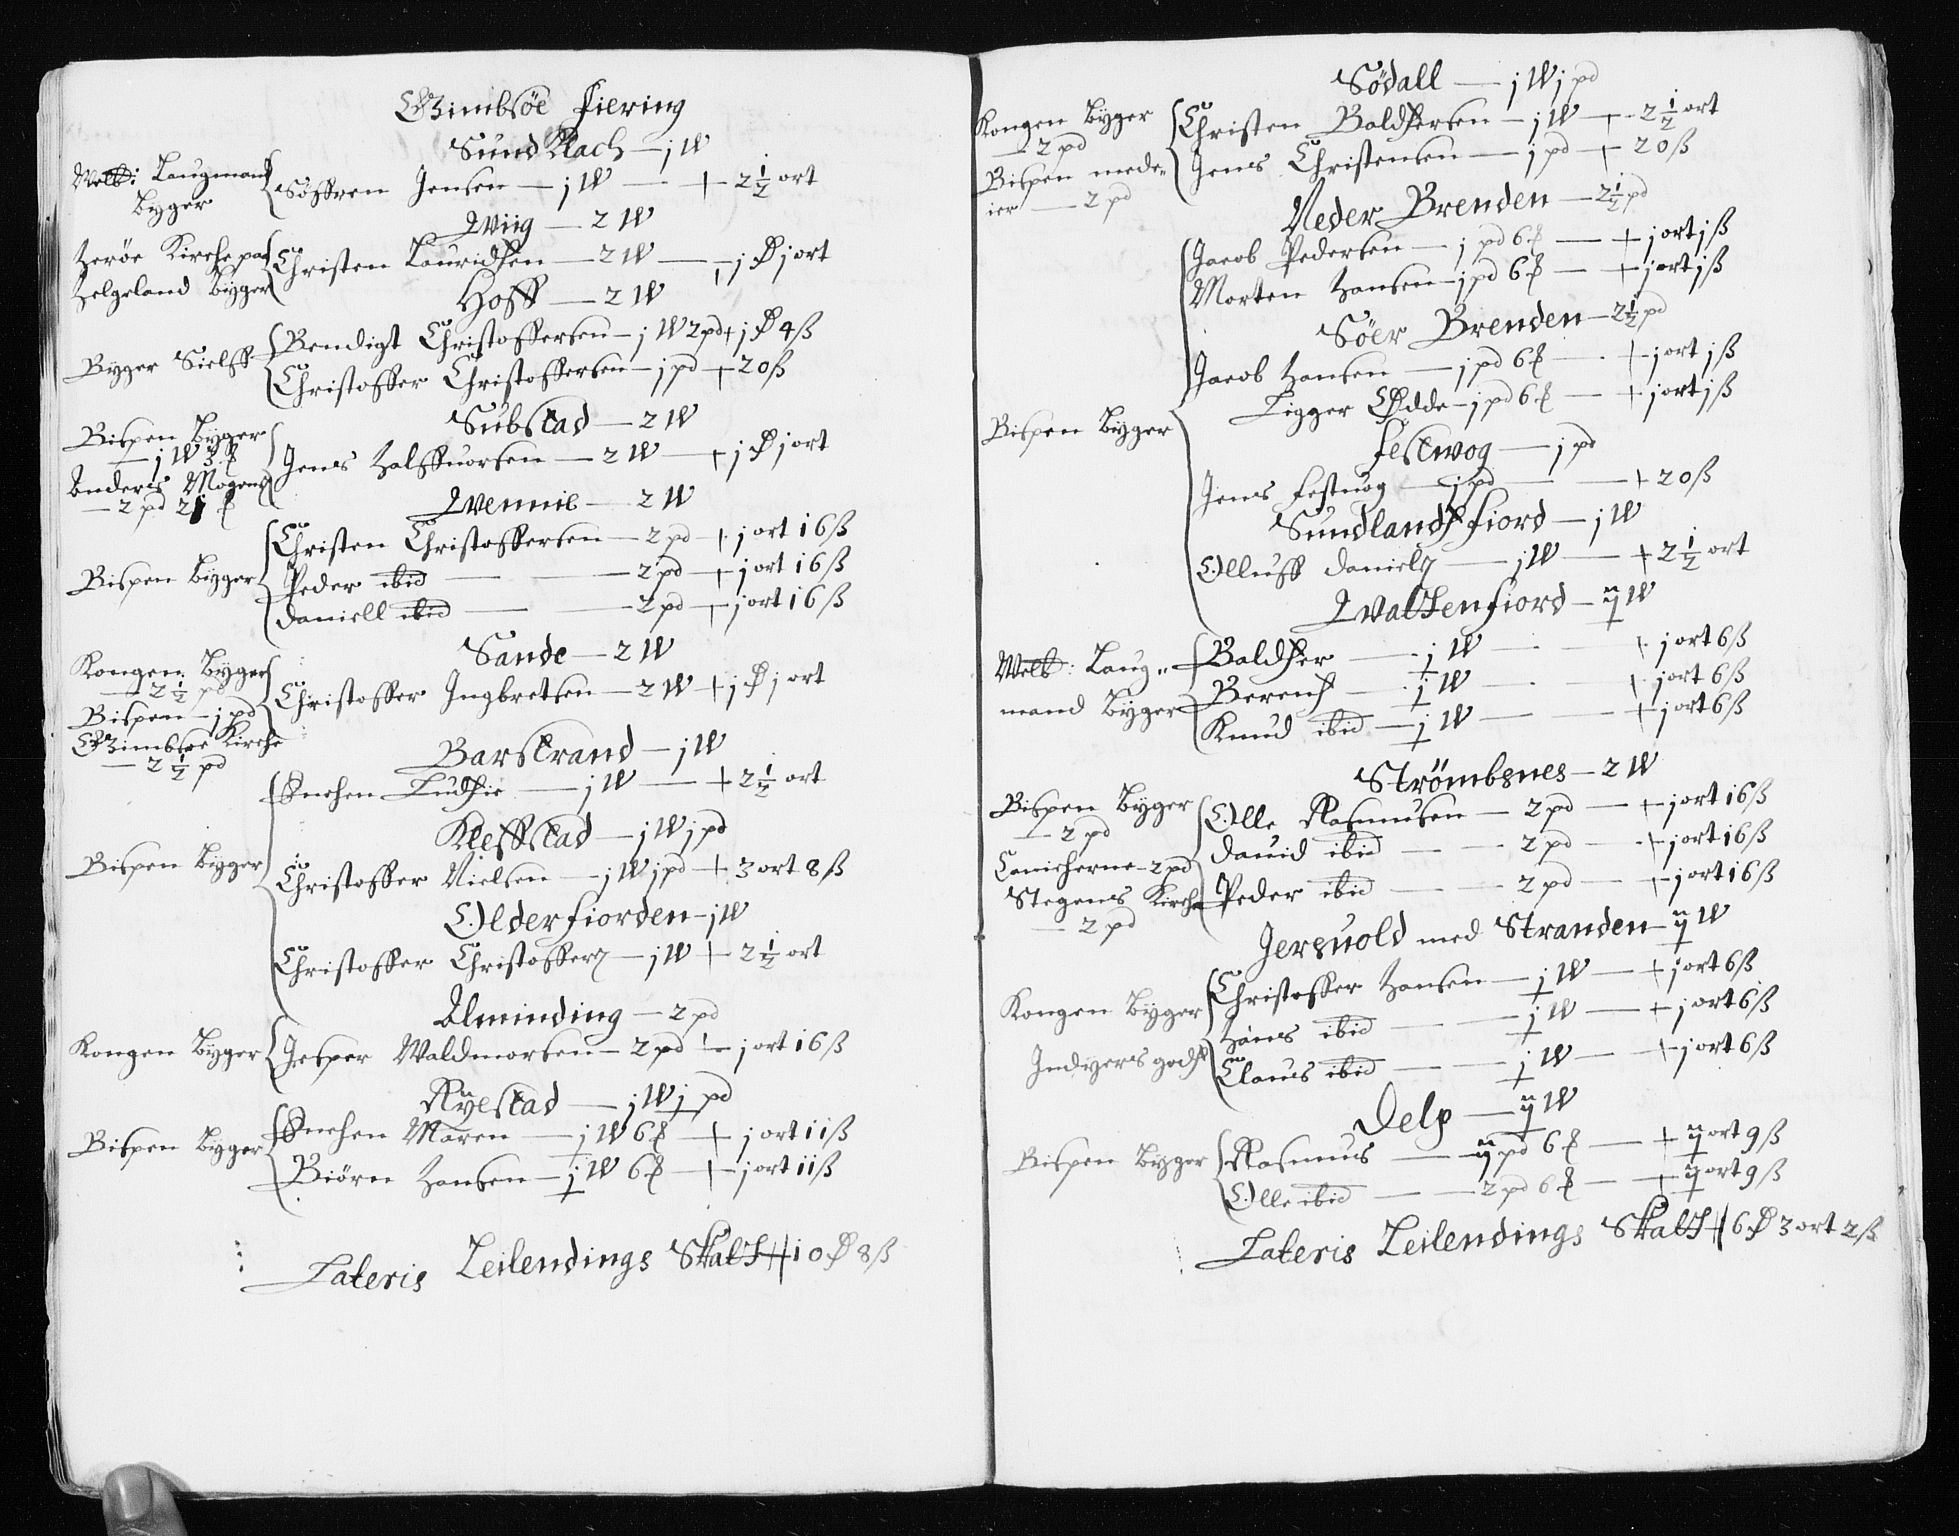 Gimbsøe fiering
Sund Klach — j W
Welb: Laugmand
Byger
Søffren Jensen — j W — + 2½ ort
Wiig — 2 W
Herøe Kirche paa
Helgeland Byger
Christen Lauridsen — 2 W — j D j ort
Hoff — 2 W
Byger Sielff
Bendigt Christoffersen — j W 2 pd + j D 4 ß
Christoffer Christoffersen — j pd + 20 ß
Substad — 2 W
Bispen Byger
— j W 3 ℔
Anders Mogens
— 2 pd 21 ℔
Jens Halffuorsen — 2 W — + j D j ort
Wennie — 2 W
Bispen Byger
Christen Christoffersen — 2 pd + j ort 16 ß
Peder ibid — 2 pd + j ort 16 ß
Daniell ibid — 2 pd + j ort 16 ß
Sande — 2 W
Kongen Byger
— 2½ pd
Bispen — j pd
Gimbsøe Kirche
— 2½ pd
Christoffer Ingbretsen — 2 W + j D j ort
Barstrand — j W
Enchen Ludsie — j W — + 2½ ort
Kleffstad — j W j pd
Bispen Byger
Christoffer Nielsen — j W j pd + 3 ort 8 ß
Olderfiorden — j W
Christoffer Christoffers — j W + 2½ ort
Alminding — 2 pd
Kongen Byger
Jesper Waldmorsen — 2 pd + j ort 16 ß
Ryestad — j W j pd
Bispen Byger
Enchen Maren — j W 6 ℔ + j ort 11 ß
Biørn Hansen — j W 6 ℔ + j ort 11 ß
Lateris Leilendings Skatt 10 D 8 ß
Sødall — j W j pd
Kongen Byger
— 2 pd
Bispen mede„
ier — 2 pd
Christen Baldsersen — j W + 2½ ort
Jens Christensen — j pd + 20 ß
Neder Brenden — 2½ pd
Jacob Pedersen — j pd 6 ℔ — + j ort j ß
Morten Hansen — j pd 6 ℔ — + j ort j ß
Søer Brenden — 2½ pd
Jacob Hansen — j pd 6 ℔ — + j ort j ß
Ligger Ødde — j pd 6 ℔ — + j ort j ß
Bispen Byger
Festwog — j pd
Jens Festuog — j pd — + 20 ß
Sundlandsfiord — j W
Olluff Daniels — j W — + 2½ ort
Watkenfiord — ij W
Welb: Laug„
mand Byger
Baldser — j W + j ort 6 ß
Berent — j W + j ort 6 ß
Knud ibid — j W + j ort 6 ß
Strømbsnes — 2 W
Bispen Byger
— 2 pd
Canicherne — 2 pd
Stegens Kirche
— 2 pd
Olle Rasmusen — 2 pd — + j ort 16 ß
Dauid ibid — 2 pd — + j ort 16 ß
Peder ibid — 2 pd — + j ort 16 ß
Jersuold med Stranden — ij W
Kongen Byger
Christoffer Hansen — j W — + j ort 6 ß
Hans ibid — j W — + j ort 6 ß
Jndyers gods
Claus ibid — j W — + j ort 6 ß
Delp — ij W
Bispen Byger
Rasmus — ij pd 6 ℔ — + ij ort 9 ß
Olle ibid — 2 pd 6 ℔ — + ij ort 9 ß
Lateris Leilendings Skatt 6 D 3 ort 2 ß